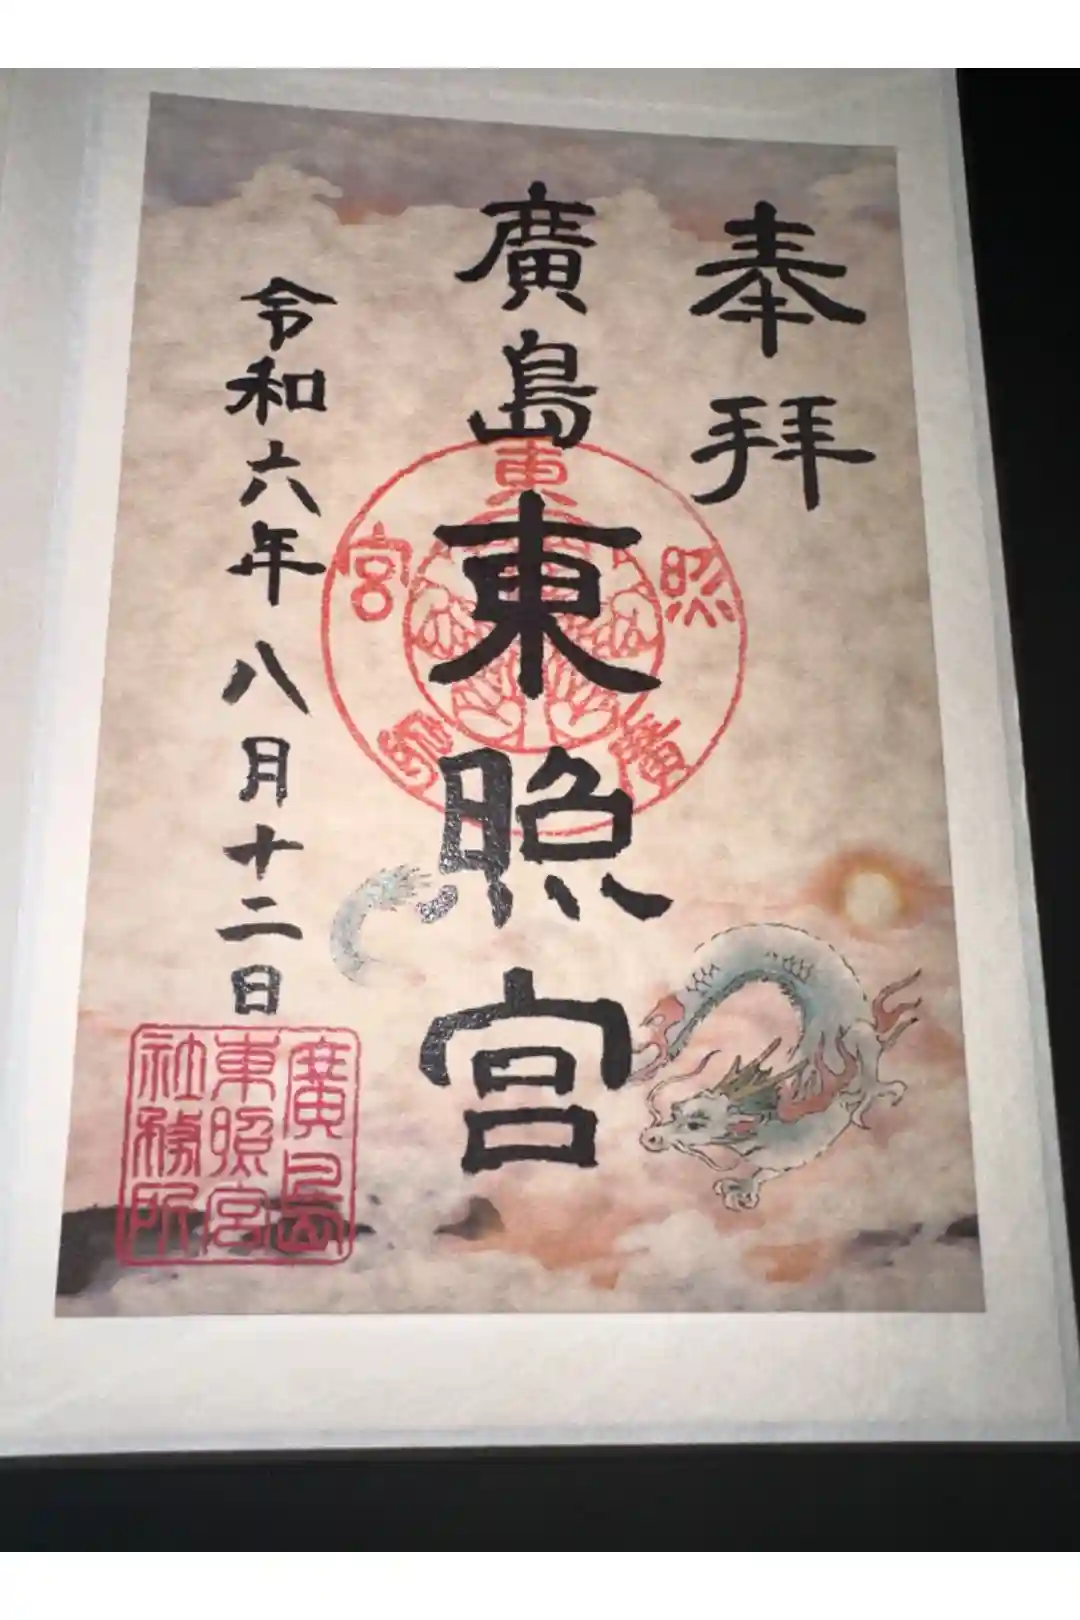 奉拝
廣島東照宮
東照宮廣島
令和六年八月十二日
廣島
東照宮
社務所